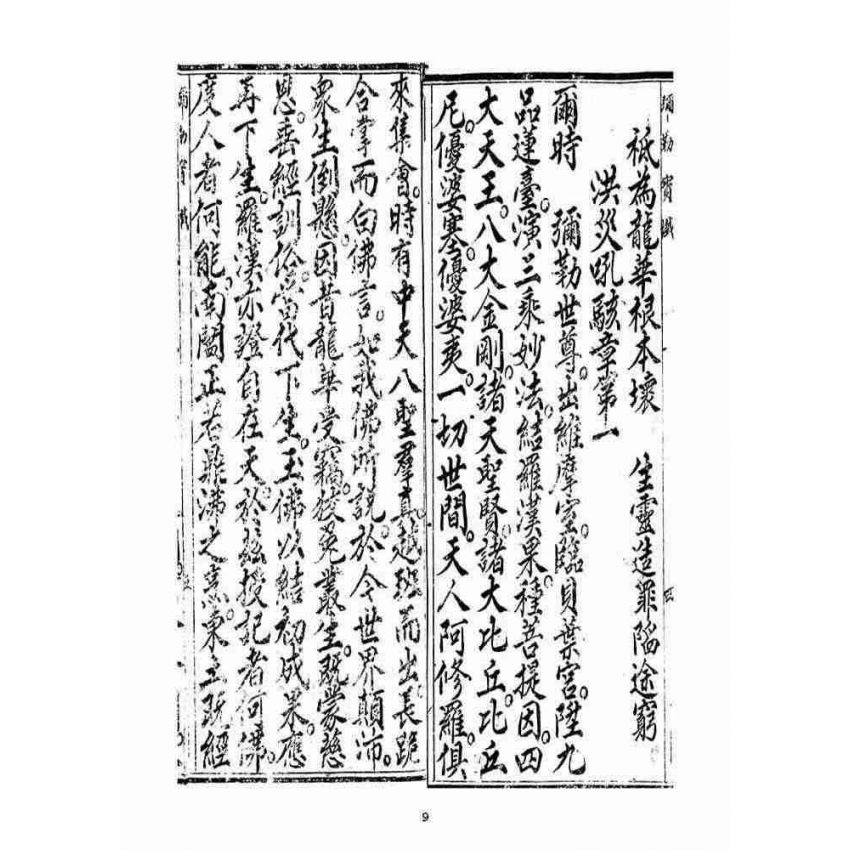 彌勒寶懺
祇為龍華根本壞　生靈造罪陷途窮
洪災吼駭章第一
爾時　彌勒世尊。出維摩室。臨貝葉宮。陞九
品蓮臺。演三乘妙法。結羅漢果。種菩提因。四
大天王。八大金剛。諸天聖賢。諸大比丘。比丘
尼。優婆塞。優婆夷。一切世間。天人阿修羅。俱
來集會。時有中天八聖羣真。越班而出。長跪
合掌而白佛言。如我佛所說。於今世界顛沛。
衆生倒懸。因昔龍華受竊。致冤叢生。既蒙慈
恩。垂經訓俗。當代下生。玉佛以結初成果。應
再下生。羅漢亦證自在天。於茲授記者何佛。
度人者何能。南閻正若鼎沸之
既經
彌勒寶懺
9